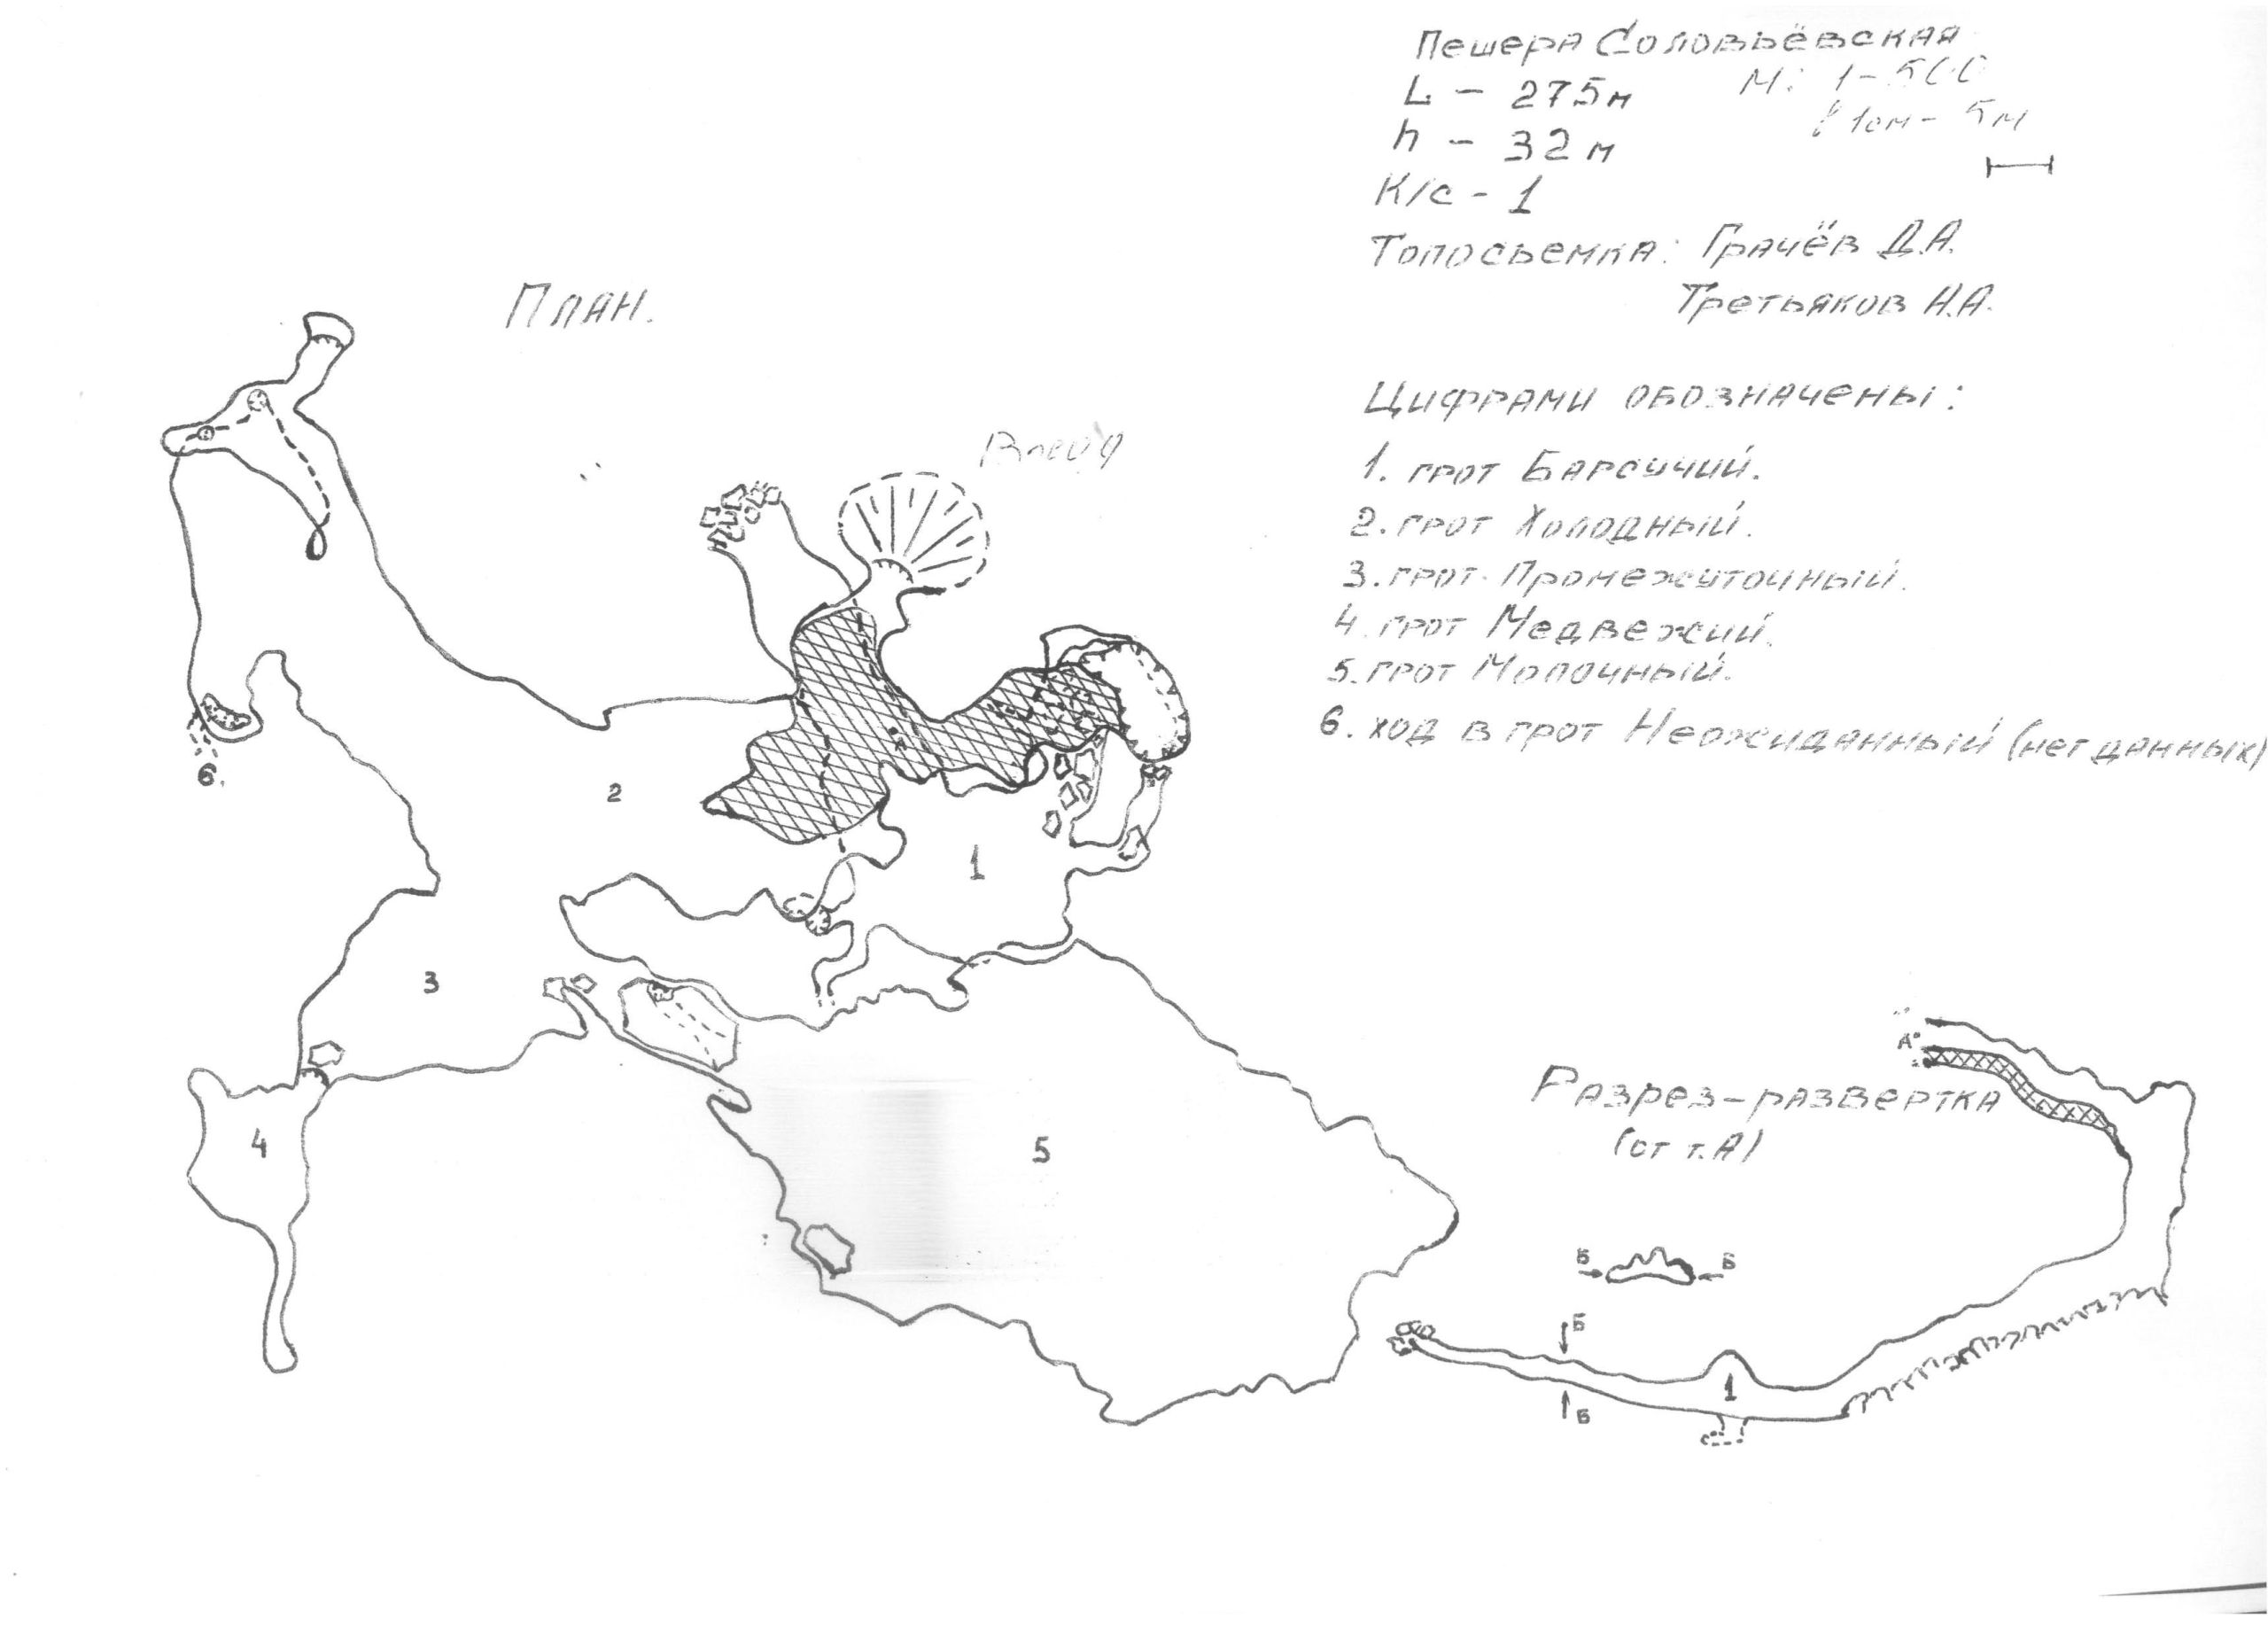 Пещера Соловьёвская
L - 275м
М: 1-500
в 1см - 5м
h - 32 м
К/с - 1
Топосъемка: Грачёв Д.А.
Третьяков Н.А.
План.
Цифрами обозначены:
1. грот Барсучий.
2. грот Холодный.
3. грот Промежуточный.
4. грот Медвежий.
5. грот Молочный.
6. ход в грот Неожиданный (нет данных)
Вход
А
1
2
3
4
5
6.
Разрез-развертка
(от т.А)
А
Б
Б
Б
Б
1